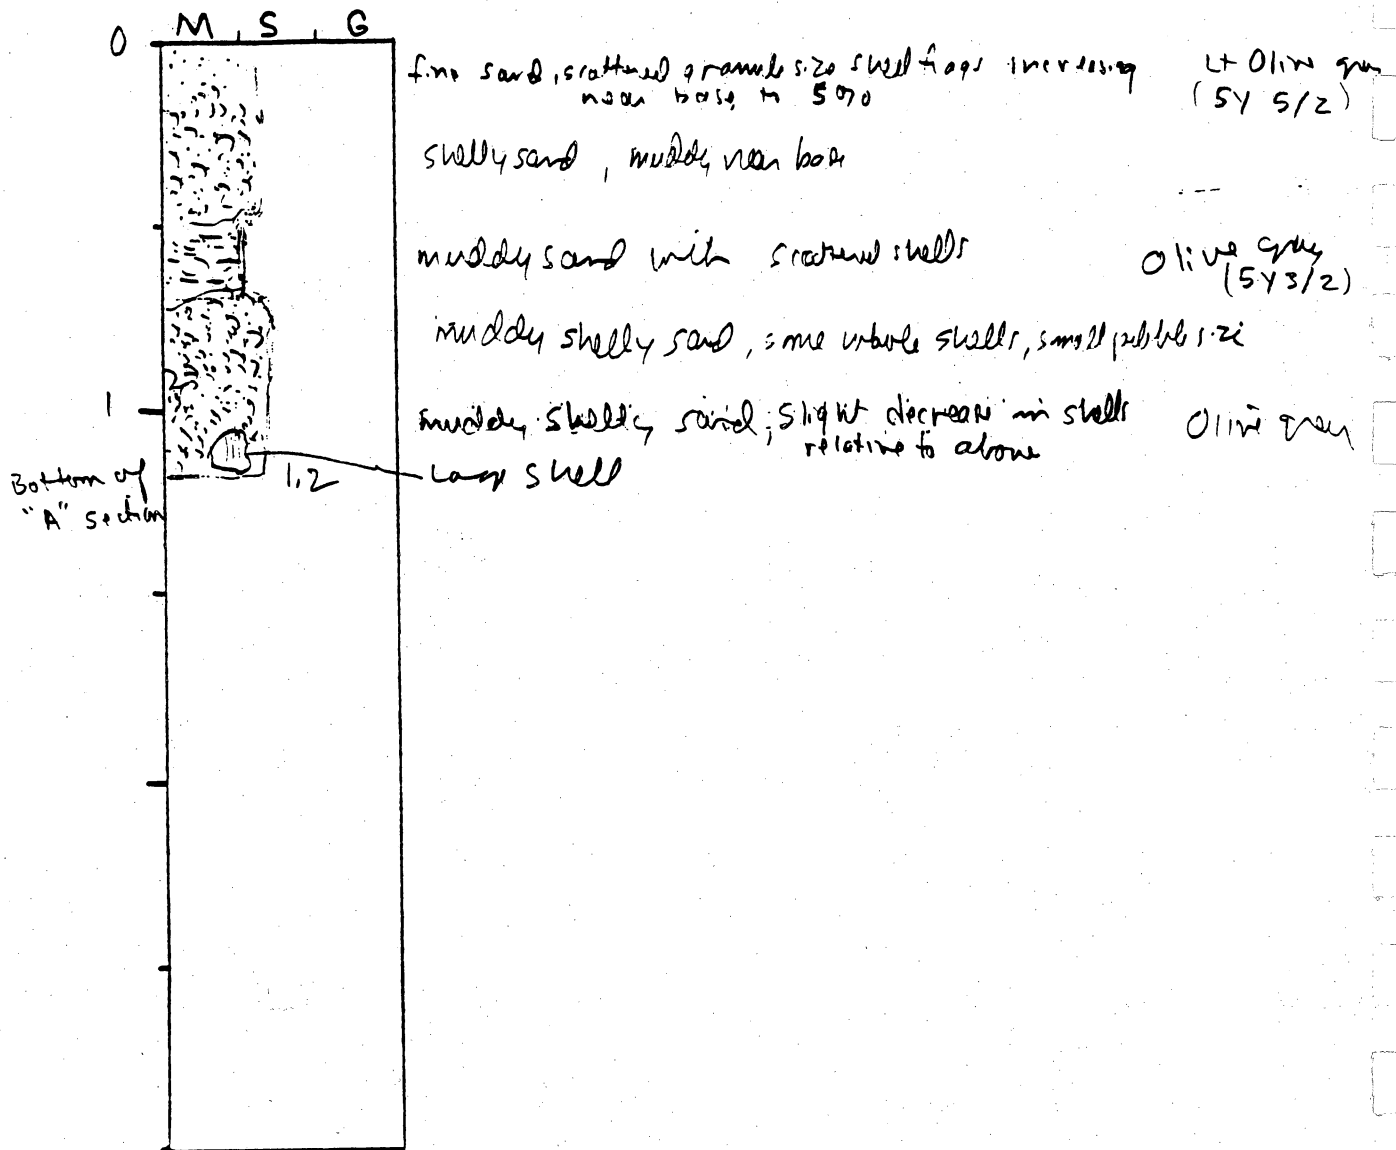 M S G
0
fine sand, scattered granule size shell frags increasing
near base, to 5%
Lt Olive gray
(5Y 5/2)
shelly sand, muddy near base
muddy sand with scattered shells
Olive gray
(5Y3/2)
muddy shelly sand, some whole shells, small pebble size
1
muddy shelly sand; slight decrease in shells
relative to above
Olive gray
Large shell
1.2
Bottom of
"A" section